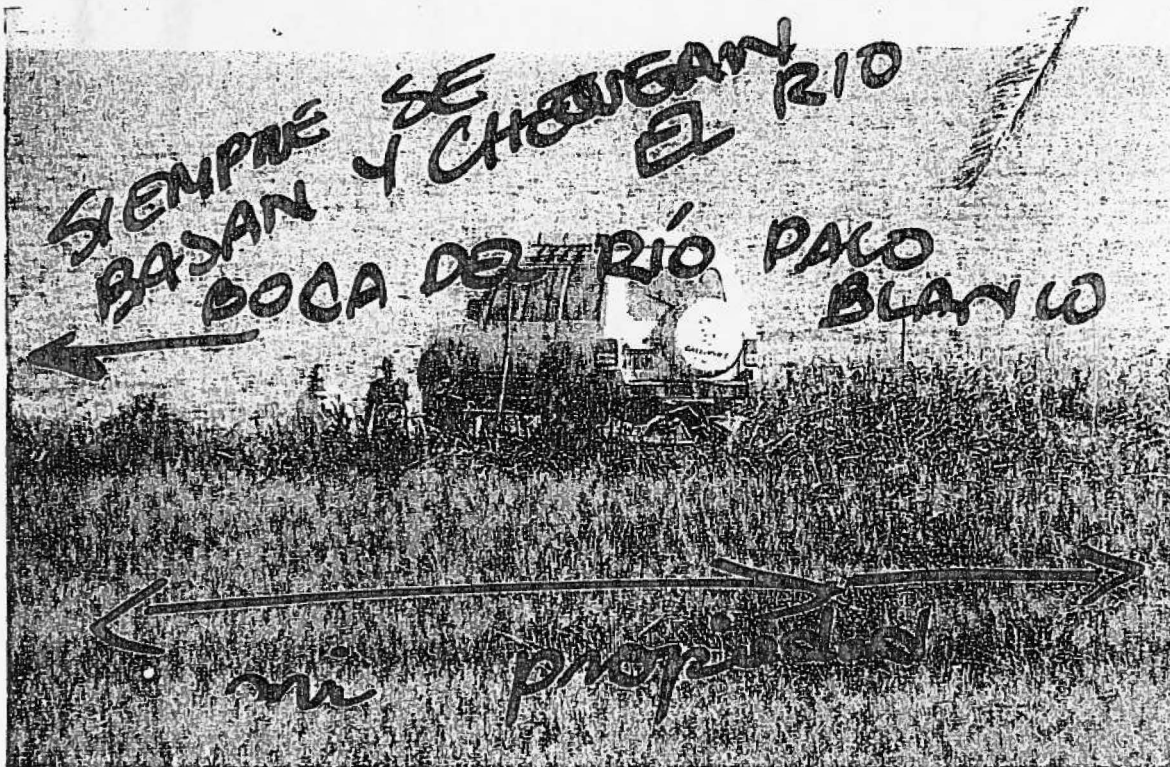 SIEMPRE SE
BAJAN Y CHEQUEAN EL RIO
BOCA DEL RÍO PACO
BLANCO
mi propiedad